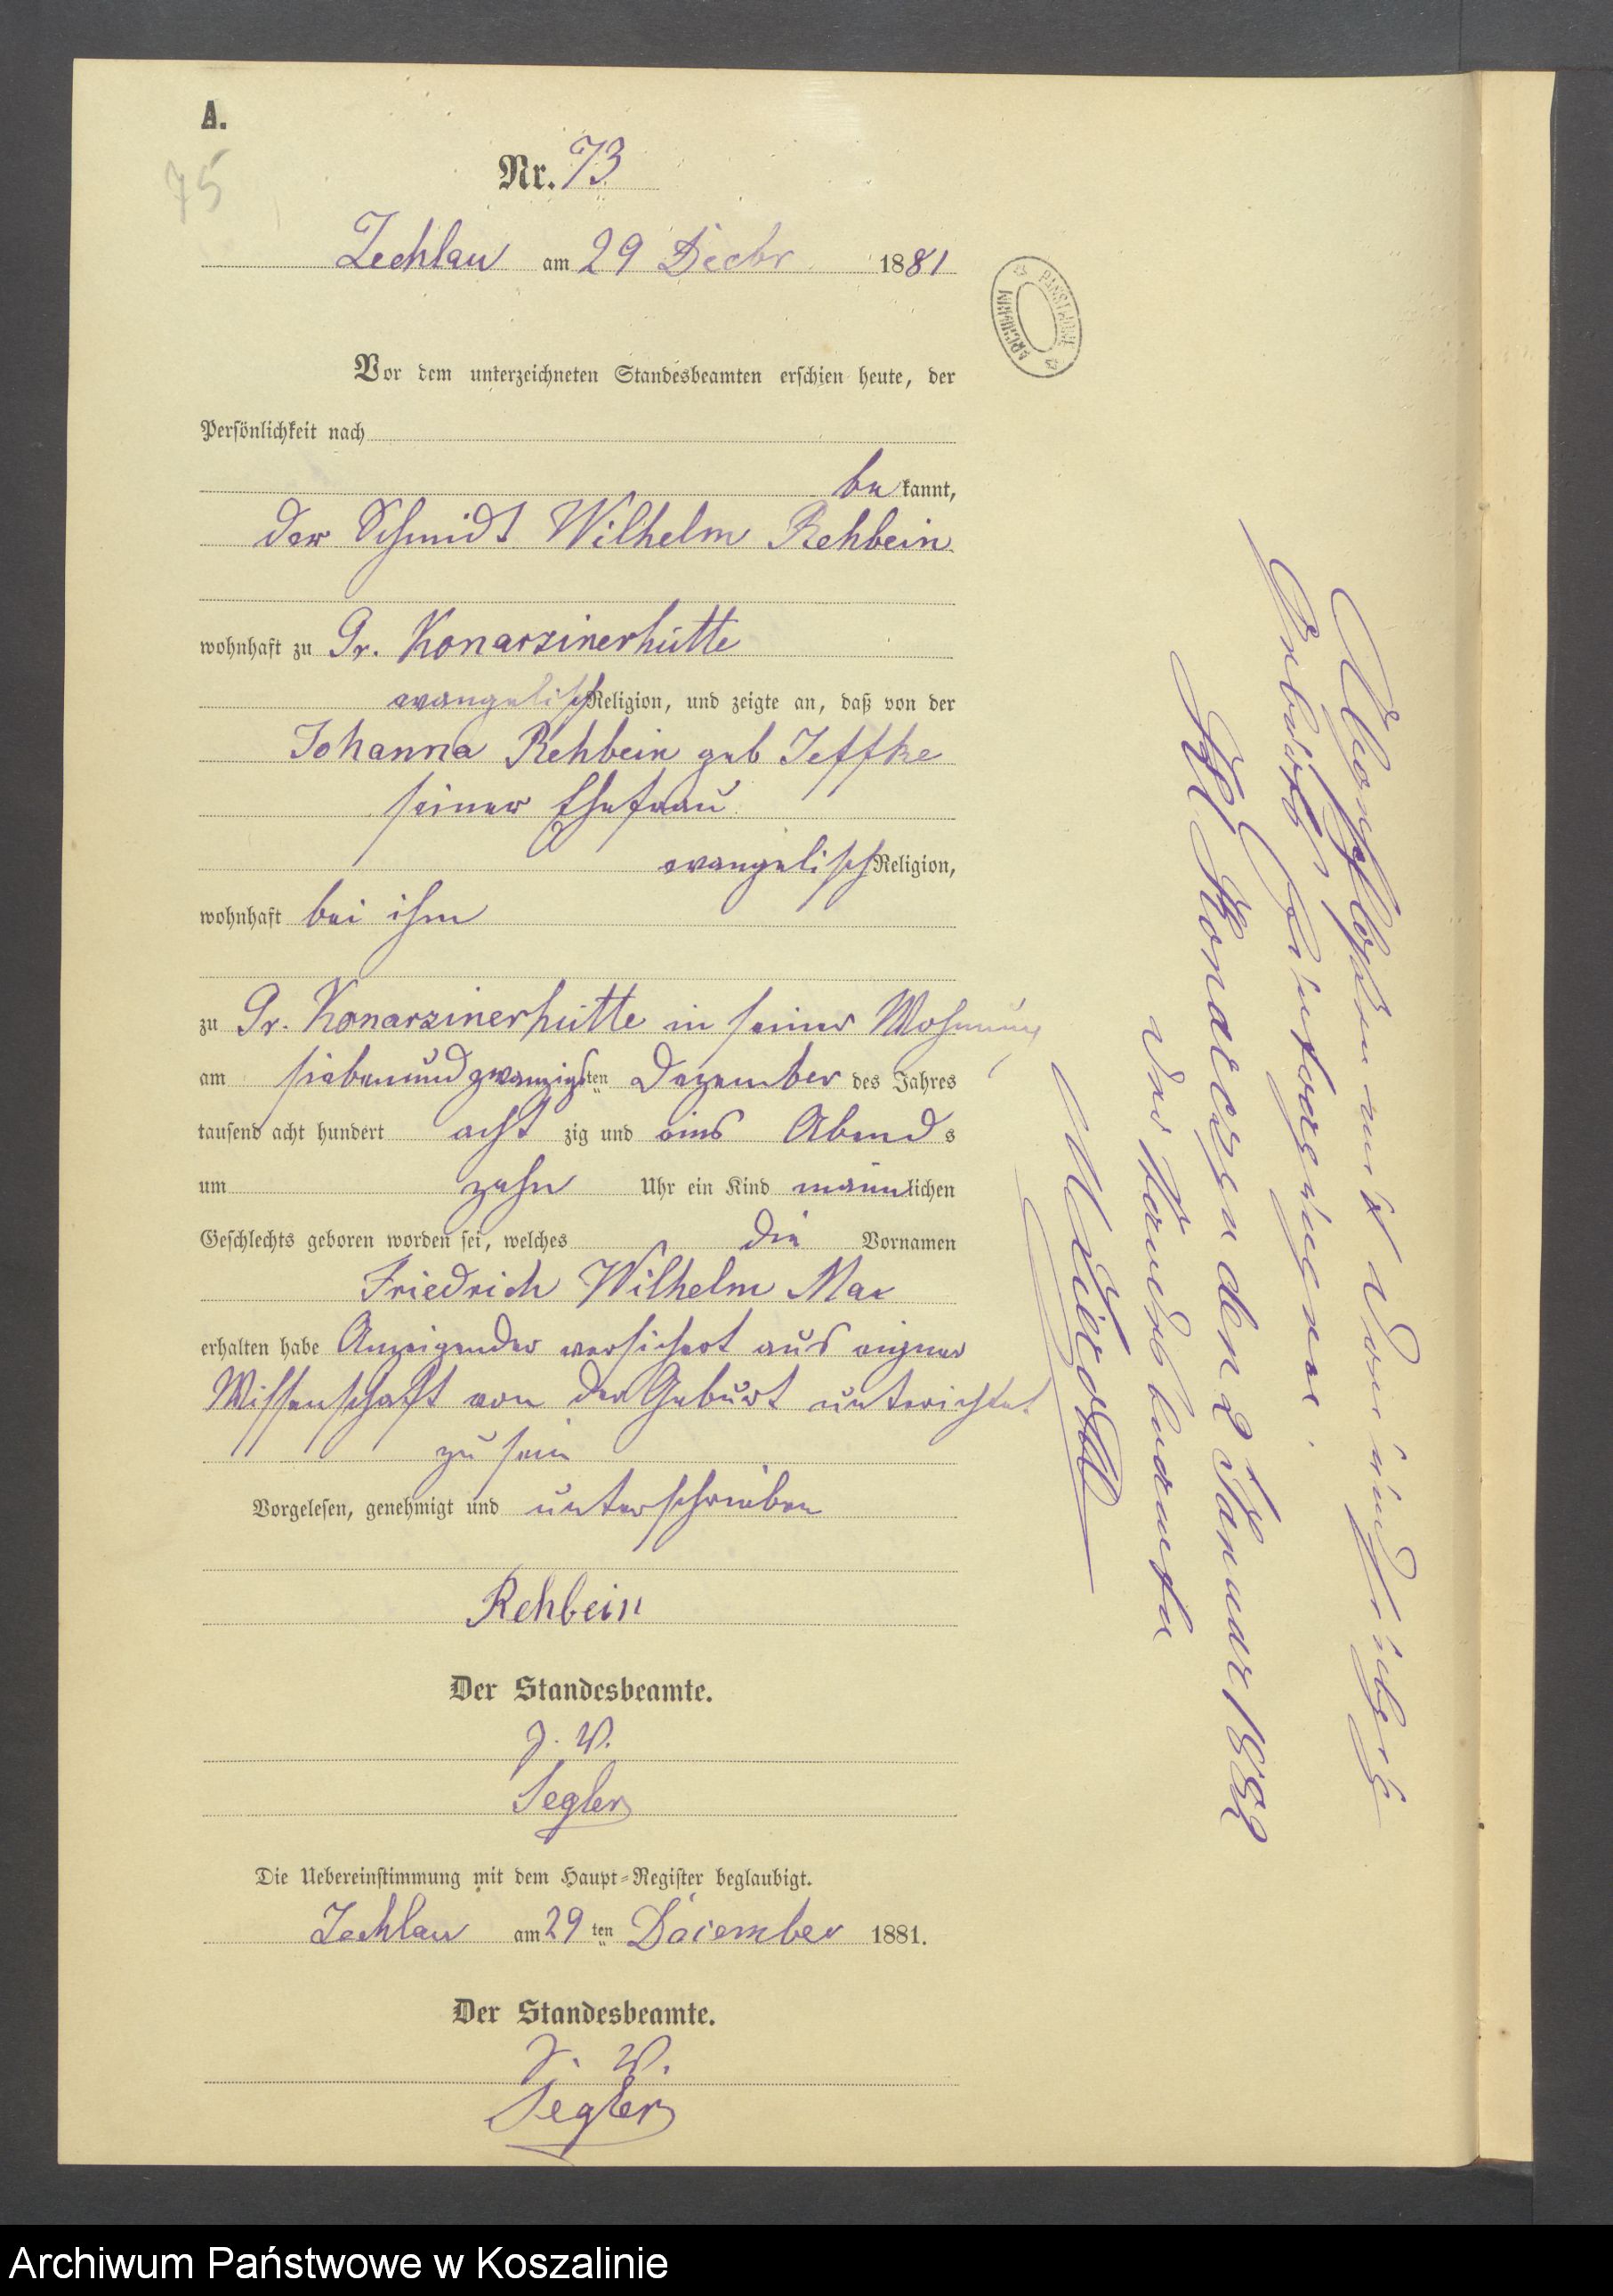 A.
75
Nr. 73
Zechlau am 29 Decbr 1881
ARCHIWUM PAŃSTWOWE
Vor dem unterzeichneten Standesbeamten erschien heute, der
Persönlichkeit nach
be kannt,
der Schmidt Wilhelm Rehbein
wohnhaft zu Gr. Konarzinerhütte
evangelisch Religion, und zeigte an, daß von der
Johanna Rehbein geb Jeffke
seiner Ehefrau
evangelisch Religion,
wohnhaft bei ihm
zu Gr. Konarzinerhütte in seiner Wohnung
am siebenundzwanzigsten Dezember des Jahres
tausend acht hundert acht zig und eins Abends
um zehn Uhr ein Kind männlichen
Geschlechts geboren worden sei, welches die Vornamen
Friedrich Wilhelm Max
erhalten habe Anzeigender versichert aus eigner
Wissenschaft von der Geburt unterichtet
zu sein
Vorgelesen, genehmigt und unterschrieben
Rehbein
Der Standesbeamte.
J. V.
Segler
Die Uebereinstimmung mit dem Haupt-Register beglaubigt.
Zechlau am 29 ten Dezember 1881.
Der Standesbeamte.
J. V.
Segler
Abgeschlossen mit
Geburts Eintragungen.
Gl. Konarczyn den 2 Januar 1882
Der Standesbeamte
Archiwum Państwowe w Koszalinie